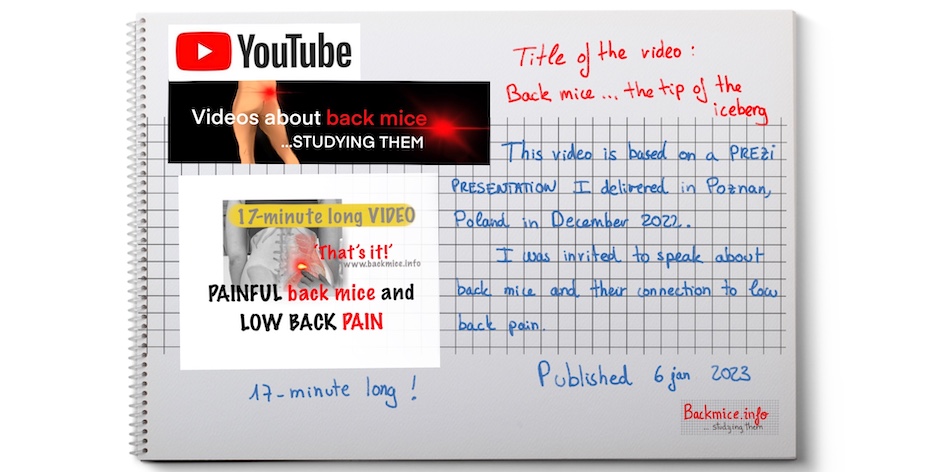 YouTube
Videos about back mice
...STUDYING THEM
17-minute long VIDEO
'That's it!'
www.backmice.info
PAINFUL back mice and
LOW BACK PAIN
17-minute long !
Title of the video :
Back mice ... the tip of the
iceberg
This video is based on a PREZi
PRESENTATION I delivered in Poznan,
Poland in December 2022.
I was invited to speak about
back mice and their connection to low
back pain.
Published 6 jan 2023
Backmice.info
... studying them